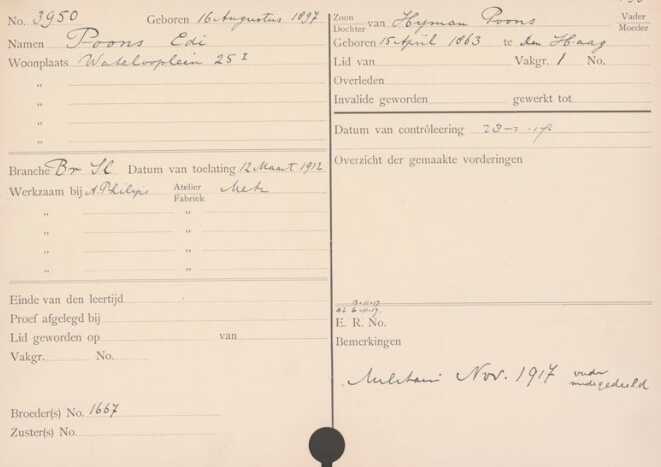 No. 3950 Geboren 16 Augustus 1897
Namen Poons Edi
Woonplaats Waterlooplein 25 I
"
"
"
"
Branche Br Sl Datum van toelating 12 Maart 1912
Werkzaam bij A Philips Atelier Fabriek Metz
" "
" "
" "
" "
Einde van den leertijd
Proef afgelegd bij
Lid geworden op van
Vakgr. No.
Broeder(s) No. 1667
Zuster(s) No.
Zoon Dochter van Hyman Poons Vader Moeder
Geboren 15 April 1863 te den Haag
Lid van Vakgr. 1 No.
Overleden
Invalide geworden gewerkt tot
Datum van contrôleering
Overzicht der gemaakte vorderingen
E. R. No.
Bemerkingen
Militair Nov. 1917